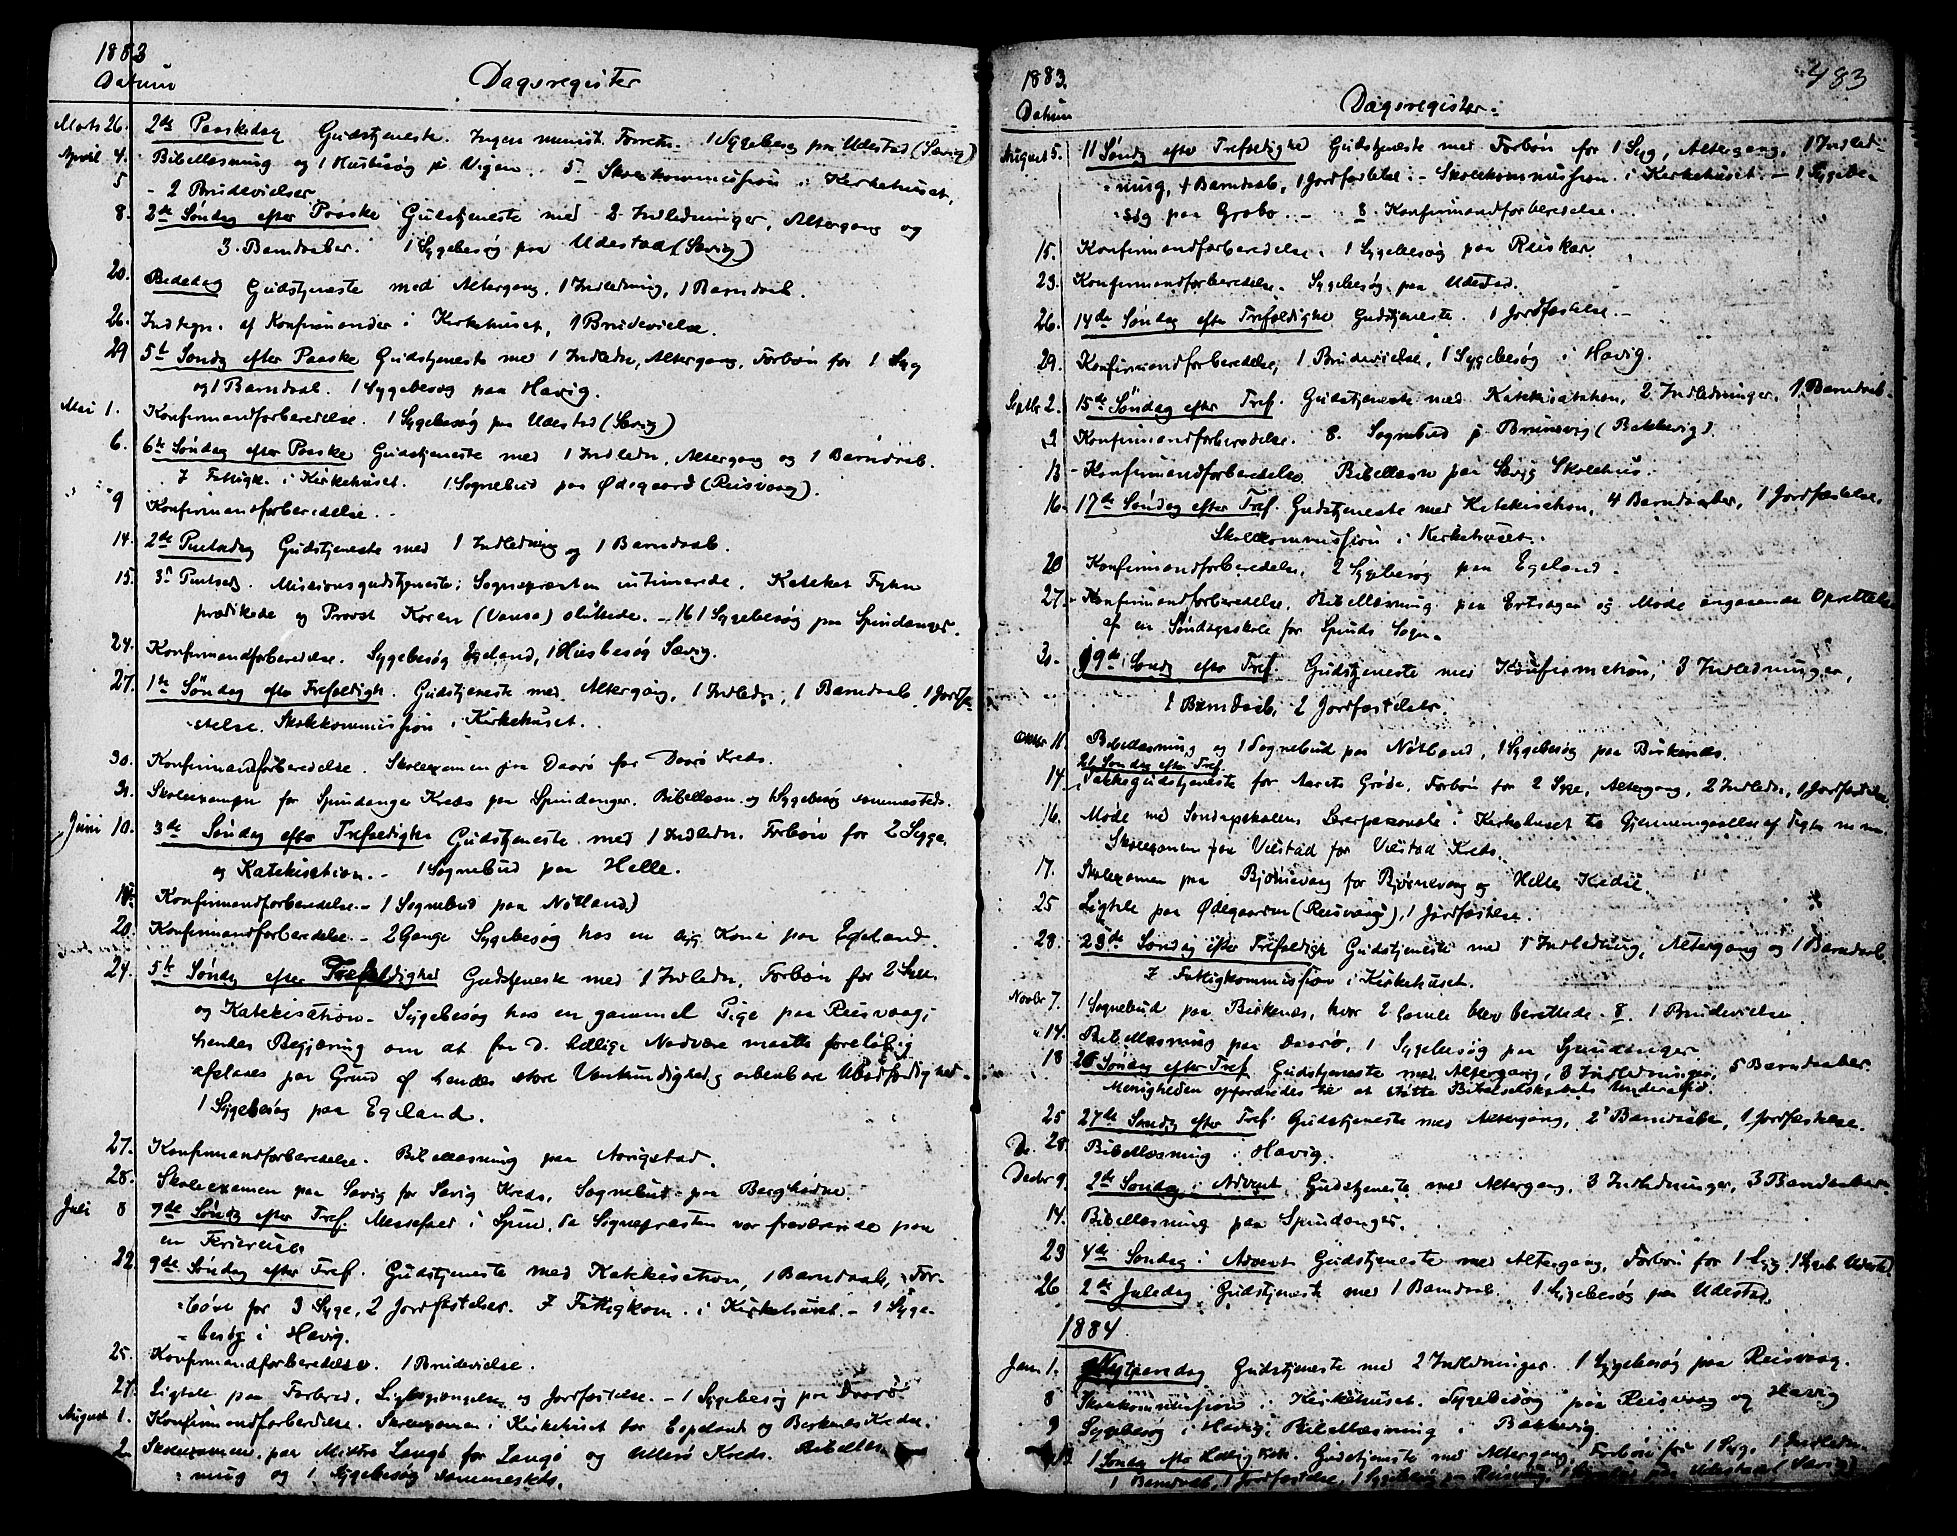 1883
Datum
Dagsregister
Marts 26. 2de Paaskedag Gudstjeneste. Ingen minist. Forretn. 1 Sygebesøg paa Udestad (Sævig)
April 4. Bibellæsning og 1 Husbesøg på Vigen. 5. Skolekommission i Kirkehuset,
5 - 2 Brudevielser
8. 2de Søndag efter Paaske Gudstjeneste med 2 Indledninger, Altergang og
3 Barndaaber. 1 Sygebesøg paa Udestad (Sævig)
20. Bededag Gudstjeneste med Altergang, 1 Indledning, 1 Barndaab.
26. Indtegn. af Konfirmander i Kirkehuset, 1 Brudevielse.
29 5te Søndag efter Paaske Gudstjeneste med 1 Indledn, Altergang, Forbøn for 1 Syg
og 1 Barndaab. 1 Sygebesøg paa Havig.
Mai 1. Konfirmandforberedelse. 1 Sygebesøg paa Udestad (Sævig)
6. 6te Søndag efter Paaske Gudstjeneste med 1 Indledn, Altergang og 1 Barndaab.
7 Fattigk. i Kirkehuset. 1 Sognebud paa Ødegaard (Reisvaag).
9 Konfirmandforberedelse.
14. 2de Pintsedag Gudstjeneste med 1 Indledning og 1 Barndaab.
15. 3d Pintsed. Missionsgudstjeneste; Sognepræsten intimerede. Kateket
prædikede og Provst Koren (Vanse) sluttede. - 16 1 Sygebesøg paa Spindanger.
24. Konfirmandforberedelse. Sygebesøg Egeland, 1 Husbesøg Sævig.
27. 1te Søndag efter Trefoldigh. Gudstjeneste med Altergang, 1 Indledn, 1 Barndaab, 1 Jordfæ-
stelse. Skolekommission i Kirkehuset.
30. Konfirmandforberedelse. Skoleexamen paa Daarø for Daarø Kreds.
31. Skoleexamen for Spindanger Kreds paa Spindanger. Bibellæsn. og 1 Sygebesøg sammesteds.
Juni 10. 3de Søndag efter Trefoldighe Gudstjeneste med 1 Indledn. Forbøn for 2 Syge,
og Katekisation. - 1 Sognebud paa Helle.
Konfirmandforberedelse. - 1 Sognebud paa Nøtland
20. Konfirmandforberedelse - 2 Gange Sygebesøg hos en syg Kone paa Egeland.
24. 5te Søndag efter Trefoldighed Gudstjeneste med 1 Indledn, Forbøn for 2 Syge
og Katekisation - Sygebesøg hos en gammel Pige paa Reisvaag;
hendes Begjæring om at faa D. hellige Nadvere maatte foreløbig
afslaaes paa Grund af hendes store Vankundighed og aabenbare Ubodfærdighed -
1 Sygebesøg paa Egeland.
27. Konfirmandforberedelse. Bibellæsning paa
28. Skoleexamen paa Sævig for Sævig Kreds, Sognebud paa
Juli 8 7de Søndg efter Tref. Messefald i Spind, da Sognepræsten var fraværende paa
en Feriereise
22. 9de Søndag efter Tref. Gudstjeneste med Katekisation, 1 Barndaab, For-
bøn for 3 Syge, 2 Jordfæstelser. 7 Fattigkom. i Kirkehuset. - 1 Syge-
besøg i Havig.
25. Konfirmandforberedelse. 1 Brudevielse.
27. Ligtale paa Ligbegjængelse og Jordfæstelse. - 1 Sygebesøg paa Daarø
August 1. Konfirmandforberedelse. Skoleexamen i Kirkehuset for Egeland og Berkenes Kreds.
2. Skoleexamen paa Langø for Langø og Ullerø Kreds. Bibellæs-
ning og 1 Sygebesøg sammesteds.
483
1883
Datum
Dagsregister
August 5. 11 Søndg efter Trefoldighe Gudstjeneste med Forbøn for 1 Syg, Altergang, 1 Indled-
ning, 4 Barndaab, 1 Jordfæstelse. - Skolekommission i Kirkehuset - 1 Sygebe-
søg paa - 8. Konfirmandforberedelse.
15. Konfirmandforberedelse. 1 Sygebesøg paa
23. Konfirmandforberedelse. Sygebesøg paa Udestad.
26. 14de Søndag efter Trefoldighe Gudstjeneste. 1 Jordfæstelse. -
29. Konfirmandforberedelse, 1 Brudevielse, 1 Sygebesøg i Havig.
Septbr 2. 15de Søndag efter Tref. Gudstjeneste med Katekisation, 2 Indledninger, 1 Barndaab.
Konfirmandforberedelse. 8. Sognebud på Brunsvig (Bakkevig).
13 - Konfirmandforberedelse Bibellæsn paa Sævig Skolehus.
16. 17de Søndag efter Tref. Gudstjeneste med Katekisation, 4 Barndaaber, 1 Jordfæstelse,
Skolekommission i Kirkehuset.
20 Konfirmandforberedelse, 2 Sygebesøg paa Egeland.
27. - Konfirmandforberedelse. Bibellæsning paa og Møde angaaende Oprettelse
af en Søndagsskole for Spinds Sogn.
30. 19de Søndg efter Tref Gudstjeneste med Konfirmation, 3 Indledninger,
2 Barndaab, 2 Jordfæstelser.
Oktbr 11. Bibellæsning og 1 Sognebud paa Nøtland, 1 Sygebesøg paa Birkenæs.
21 Søndag efter Tref.
14. Takkegudstjeneste for Aarets Grøde. Forbøn for 2 Syge, Altergang, 2 Indledn, 1 Jordfæstelse
16. Møde med Søndagsskolens Lærerpersonale i Kirkehuset til Gjennemgaaelse af
Skoleexamen paa Udestad for Udestad Kreds.
17. Skoleexamen paa Bjørnevaag for Bjørnevaag og Helles Kreds.
25 Ligtale paa Ødegaarden (Reisvaag), 1 Jordfæstelse.
28. 23de Søndag efter Trefoldigh Gudstjeneste med 1 Indledning, Altergang og 1 Barndaab
7 Fattigkommission i Kirkehuset.
Novbr 7. 1 Sognebud paa Birkenæs, hvor 2 Gamle blev berettede. 8. 1 Brudevielse
14. Bibellæsning paa Daarø, 1 Sygebesøg paa Spindanger
18 26 Søndag efter Tref Gudstjeneste med Altergang, 3 Indledninger, 5 Barndaaber
Menigheden opfordredes til at støtte Bibelselskabets Underafd.
25 27de Søndg efter Tref. Gudstjeneste med Altergang, 2 Barndaabe, 1 Jordfæstelse.
28. Bibellæsning i Havig.
Decbr 9. 2de Søndag i Advent, Gudstjeneste med Altergang, 3 Indledninger, 3 Barndaaber
14. Bibellæsning paa Spindanger.
23 4de Søndag i Advent Gudstjeneste med Altergang, Forbøn for 1 Syg, 1 Sygeb. Udestd
26 2de Juledag Gudstjeneste med 1 Barndaab. 1 Sygebesøg paa Udestad.
1884
Jan 1. Nytaarsdag Gudstjeneste med 2 Indledninger. 1 Sygebesøg paa Reisvaag.
8 Skolekommission i Kirkehuset. Sygebesøg paa Reisvaag og Havig
9 Sygebesøg i Havig, Bibellæsning i Bakkevig.
1 Søndag efter Gudstjeneste med Altergang, Forbøn for 1 Syg, 1 Indledn.
1 Barndaab, 1 Jordfæstelse, 1 Sygebesøg paa Reisvaag, paa Udestad (Sævig)